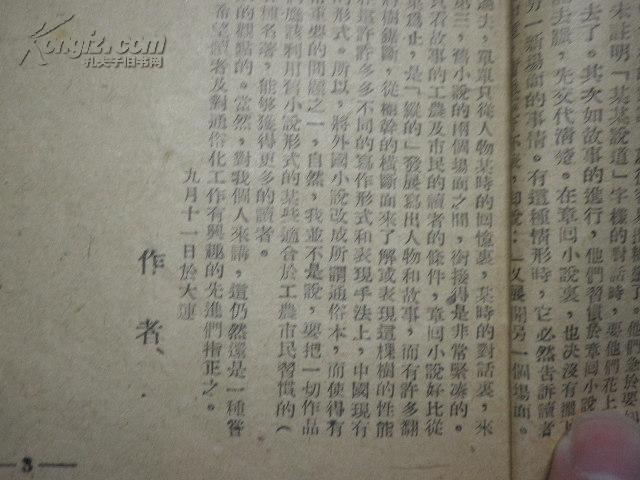 未註明「某某說道」字樣的對話時，要他們花上
去了。其次如故事的進行，他們習慣於章回小說
去跟，先交代清楚。在章回小說裏，也決沒有擺上
另一新場面的事情。有這種情形時，它必然告訴讀者
以展開另一個場面。
單單只從人物某時的回憶裏，某時的對話裏，來
第三，舊小說的兩個場面之間，銜接得是非常緊凑的。
只看故事的工農及市民的讀者的條件，章回小說好比從
爲止，是「縱的」發展寫出人物和故事，而有許多翻
樹鋸斷，從樹幹的橫斷面來了解或表現這棵樹的性能
在這許許多多不同的寫作形式和表現手法上，中國現有
的形式。所以，將外國小說改成所謂通俗本，而使得有
常重要的問題之一，自然，我並不是說，要把一切作品
們應該利用舊小說形式的某些適合於工農市民習慣的（
種名著，能够獲得更多的讀者。
的觀點的。當然，對我個人來講，這仍然還是一種嘗
希望讀者及對通俗化工作有興趣的先進們指正之。
九月十一日於大連
作者、
—3—
Kongfz.com
孔夫子旧书网